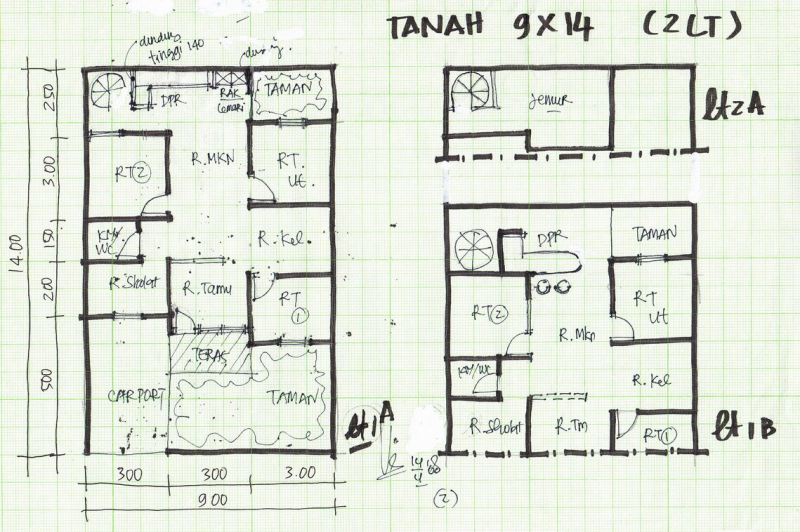 TANAH 9X14 (2LT)
dinding
tinggi 140
DPR
RAK
Lemari
TAMAN
RT 2
R.MKN
RT.
Ut.
KM/
WC
R.Kel.
R.Sholat
R.Tamu
RT
1
TERAS
CARPORT
TAMAN
250
3.00
150
200
500
14.00
300
300
3.00
9.00
lt 1 A
14
4
08
(2)
Jemur
lt 2 A
DPR
TAMAN
RT 2
R.Mkn
RT
Ut
KM/WC
R.Kel
R.Sholat
R.Tm
RT 1
lt 1 B